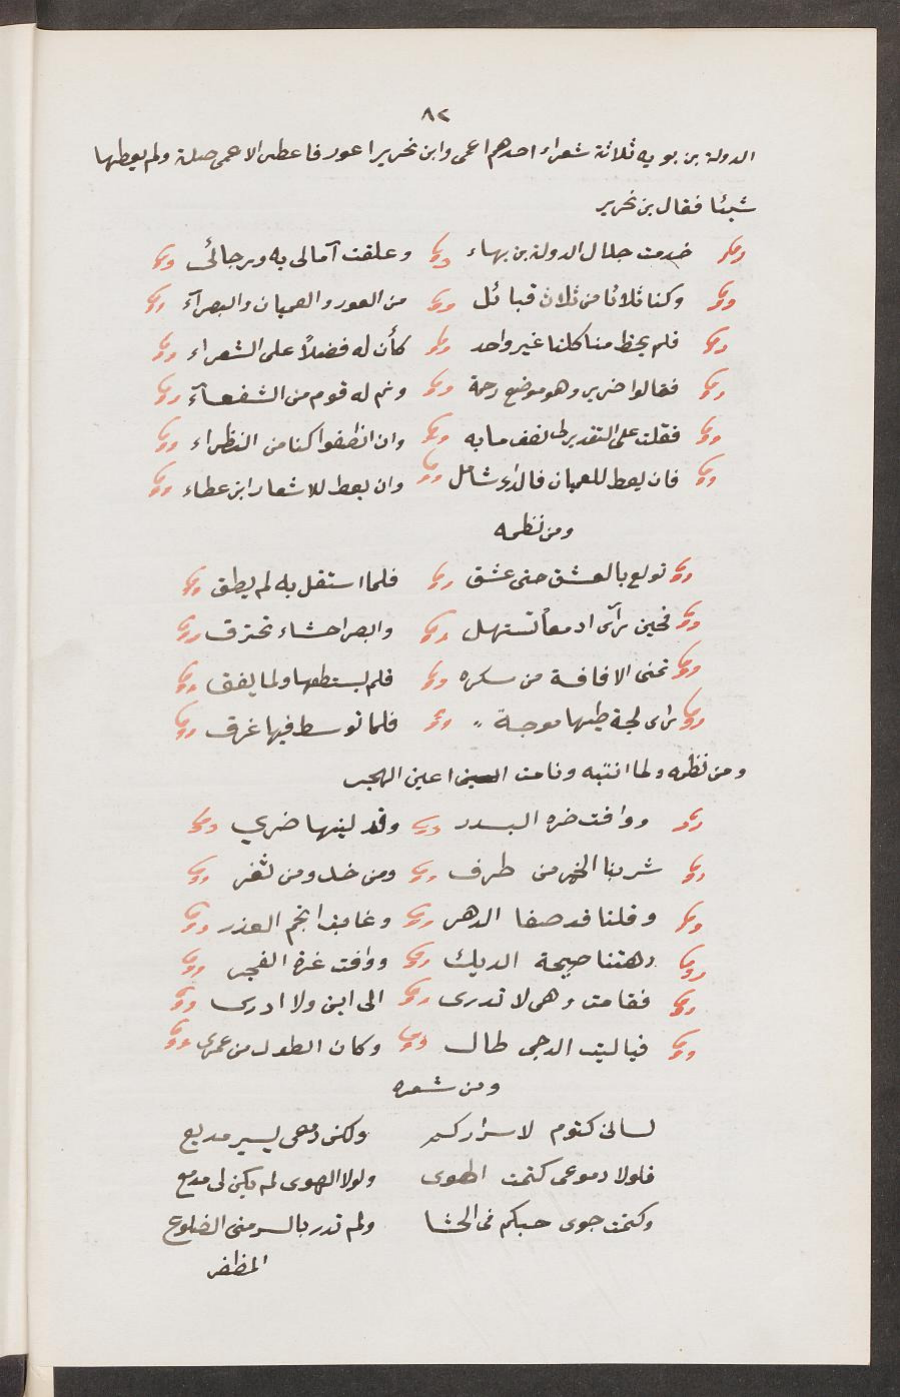 ٨٢
الدولة بن بويه ثلاثة شعراء احدهم اعمى وابن نحرير اعور فاعطى الاعمى صلة ولم يعطهما
شيئا فقال بن نحرير
خدمت جلال الدولة بن بهاء وعلقت آمالى به ورجائى
وكنا ثلاثا من ثلاث قبائل من العور والعميان والبصرآء
فلم يحظ منا كلنا غير واحد كأن له فضلاً على الشعراء
فقالوا ضرير وهو موضع رحمة وثم له قوم من الشفعآء
فقلت على التقدير لى نصف ما به وان انصفوا كنا من النظراء
فان يعط للعميان فالداء شامل وان يعط للاشعار ابن عطاء
ومن نظمه
تولع بالعشق حتى عشق فلما استقل به لم يطق
فحين رآى ادمعاً تستهل وابصر احشاء تحترق
تمنى الافاقة من سكره فلم يستطعها ولما يفق
رأى لجة ظنها موجة فلما توسط فيها غرق
ومن نظمه ولما انتبه ونامت اعين الهجر
ووافت ضره البدر وقد لينها ضري
شربنا الخمر من طرف ومن خد ومن ثغر
وقلنا قد صفا الدهر وغابت انجم الغدر
دهتنا صيحة الديك ووافت غرة الفجر
فقامت وهى لا تدرى الى اين ولا ادرى
فياليت الدجى طال وكان الطول من عمرى
ومن شعره
لسانى كتوم لاسراركم ولكن دمعى لسير مديع
فلولا دموعى كتمت الهوى ولولا الهوى لم يكن لى دموع
وكتمت جوى حبكم فى الحشا ولم تدر بالسر منى الضلوع
المظفر